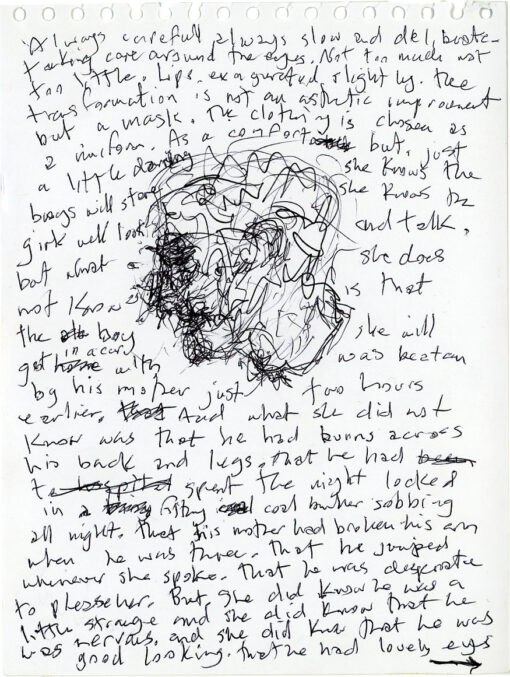 Always carefull, always slow and deliberate-
taking care around the eyes. Not too much not
too little. Lips, exagurated, slightly. The
transformation is not an asthetic improvement
but a mask. The clothing is chosen as
a uniform. As a comfort but, just
a little daring she knows the
boys will stare she knows the
girls will look and talk.
but what she does
not know is that
the boy she will
get in a car with was beaten
by his mother just two hours
earlier. And what she did not
know was that he had burns across
his back and legs, that he had
spent the night locked
in a filthy coal bunker sobbing
all night. That his mother had broken his arm
when he was three. That he jumped
whenever she spoke. That he was desperate
to please her. But, she did know he was a
little strange and she did know that he
was nervous. and she did know that he was
good looking. that he had lovely eyes